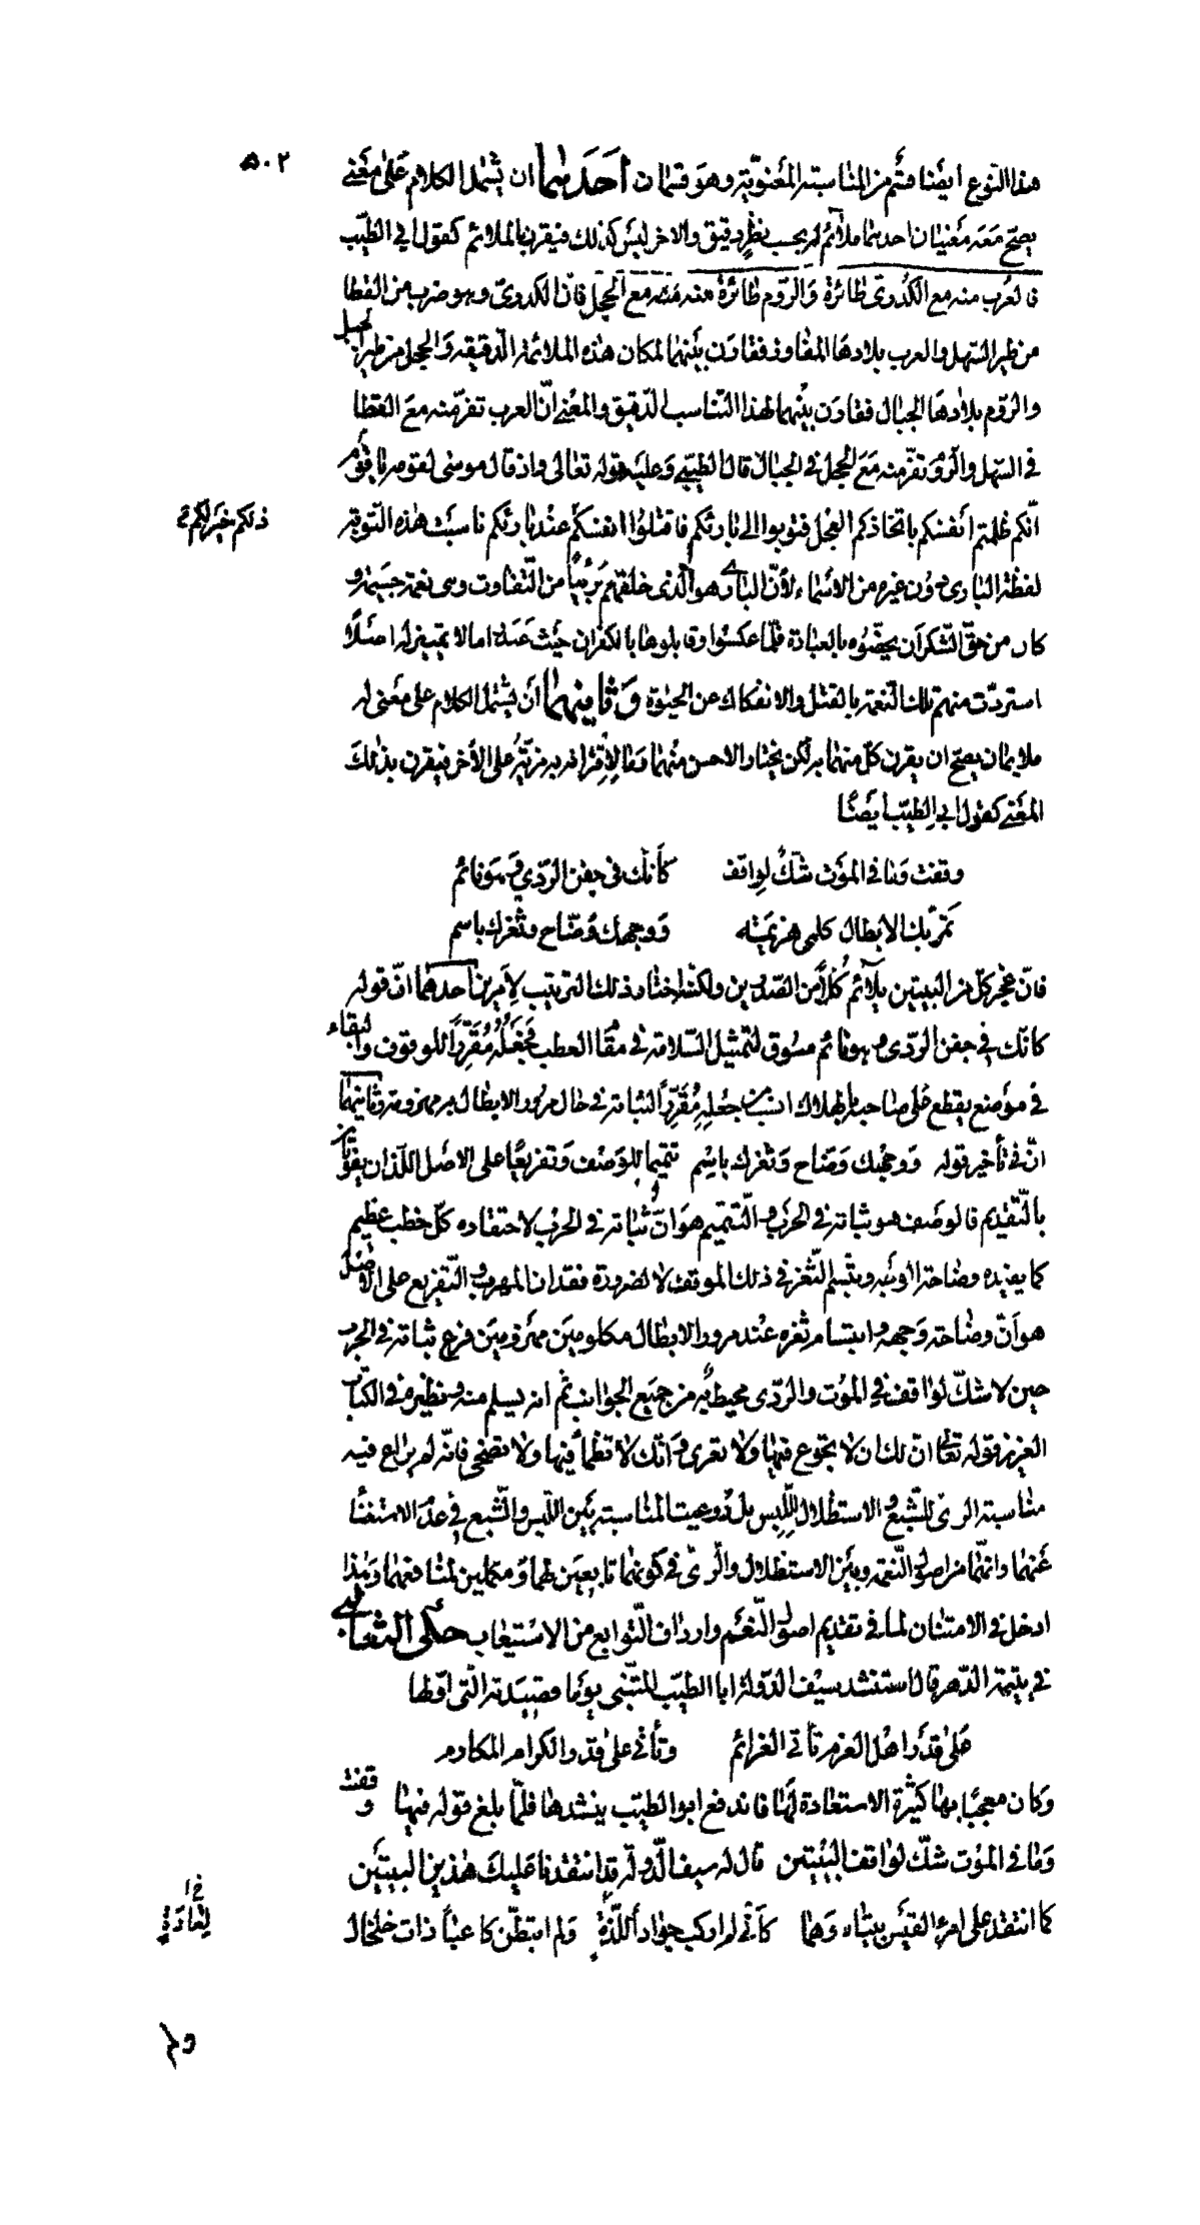 ٥٠٢
هذا النوع ايضا قسم من المناسبة المعنويّة وهو قسمان أحَدَهُما ان يشمل الكلام على معنى
يصحّ معه معنيان احدهما ملائم له بحسب نظر دقيق والاخر ليس كذلك فيقرن بالملائم كقول ابي الطيّب
فالعُرب منه مع الكُدريّ طائرة والرّوم طائرة منه مع الحجل فانّ الكدريّ وهو ضرب من القطا
من طير السّهل والعرب بلادها المفاوز فقارن بينهما لمكان هذه الملائمة الدّقيقة والحجل من طير الجبل
والرّوم بلادها الجبال فقارن بينهما لهذا التناسب الدّقيق والمعنى انّ العرب تفرّ منه مع القطا
في السّهل والرّوم تفرّ منه مَعَ الحجل في الجبال قال الطيّبي وعليه قوله تعالى واذ قال موسى لقومه يا قوم
انّكم ظلمتم انفسكم باتخاذكم العجل فتوبوا الى بارئكم فاقتلوا انفسكم عند بارئكم ناسبت هذه التّوبة
ذلكم خير لكم
لفظة البارئ دون غيره من الاسماء لأنّ البارئ هو الّذي خلقهم بَرِيًّا من التّفاوت وهى نعمة جسيمة و
كان من حقّ الشّكر أن يخصّوه بالعبادة فلمّا عكسوا وقابلوها بالكفران حيث عبدوا ما لا تمييز له اصلًا
استردّت منهم تلك النّعمة بالقتل والانفكاك عن الحيوة وَثانِيهُما أن يشمل الكلام على معنى له
ملايمان يصحّ ان يقرن كلّ منهما به لكن يختار الاحسن منهما وما لاقترانه به مزيّة على الأخر فيقرن بذلك
المعنى كقول ابي الطيّب ايضًا
وقفت وما في الموت شكٌ لواقف كأنّك في جفن الرّدي وهو نائم
تمرّ بك الابطال كلمى هزيمة ووجهك وضّاح وثغرك باسم
فانّ عجز كلّ من البيتين يلائم كُلًّا من الصّدرين ولكنّه اختار ذلك الترتيب لامرين احدهما انّ قوله
كانّك في جفن الرّدى وهو نائم مسوق لتمثيل السّلامة في مقام العطب فجَعْلُهُ مُقَرِّرًا للوقوف والبقاء
في موضع يقطع على صاحبه بالهلاك انسب من جعله مُقَرِّرًا لثباته في حال مرور الابطال به مهزومة وثانيهما
انّ في تأخير قوله ووجهك وضاح وثغرك باسم تتميما للوصف وتفريعًا على الاصل اللّذان يفوتان
بالتّقديم فالوصف هو ثباته في الحرب والتّتميم هو انّ ثباته في الحرب لاحتقاره كلّ خطب عظيم
كما يفيده وضاحة الوجه وتبسّم الثّغر في ذلك الموقف لا لضرورة فقدان المهرب والتّفريع على الاصل
هو انّ وضاحة وجهه وابتسام ثغره عند مرور الابطال مكلومين مهزومين فرع ثباته في الحرب
حين لا شكّ لواقف في الموت والرّدى محيط به من جميع الجوانب ثم انه يسلم منه ونظيره في الكتاب
العزيز قوله تعالى انّ لك ان لا تجوع فيها ولا تعرى وانّك لا تظمأ فيها ولا تضحى فانّه لم يراع فيه
مناسبة الرىّ للشّبع والاستظلال للّبس بل روعيت المناسبة بين اللّبس والشّبع في عدم الاستغناء
عنهما وانّهما من اصول النّعمة وبين الاستظلال والرّىّ في كونهما تابعين لهما ومكملين لمنافعهما وهذا
ادخل في الامتنان لما في تقديم اصول النّعم وارداف التّوابع من الاستيعاب حكى الثعالبي
في يتيمة الدّهر قال استنشد سيف الدّولة ابا الطيّب المتنبّى يومًا قصيدته الّتى اوّلها
على قدر اهل العزم تأتي العزائم وتأتي على قدر الكرام المكارم
وكان معجبًا بها كثيرة الاستعادة لها فاندفع ابو الطيّب ينشدها فلمّا بلغ قوله فيها وقفت
وما في الموت شكّ لواقف البيتين قال له سيف الدّولة قد انتقدنا عليك هذين البيتين
كما انتقد على امرء القيس بيتاه وهما كأنّي لم اركب جوادًا للذّة ولم اتبطّن كاعبًا ذات خلخال
لغارة خ ا